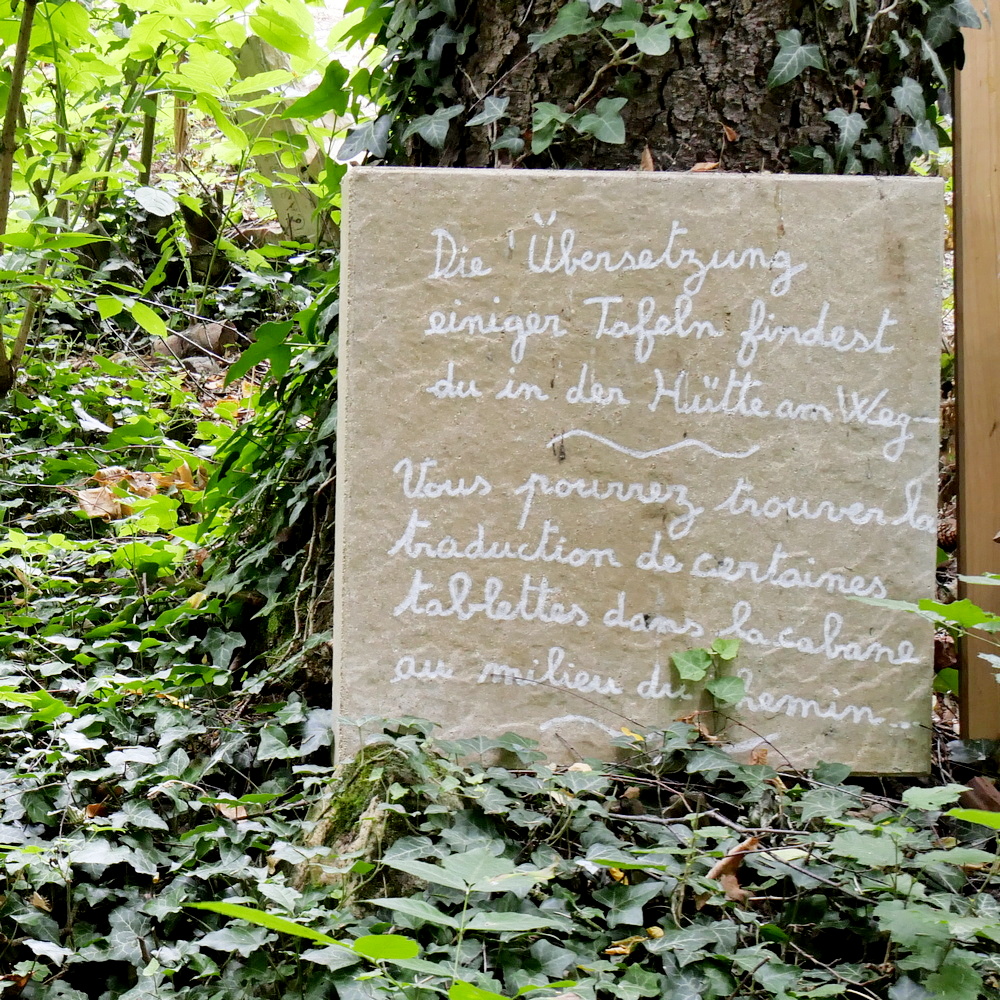 Die Übersetzung
einiger Tafeln findest
du in der Hütte am Weg-
Vous pourrez trouver la
traduction de certaines
tablettes dans la cabane
au milieu du hemin...